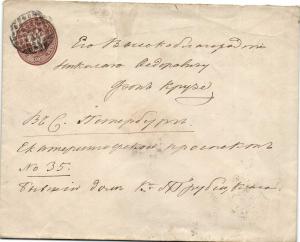 Его Высокоблагородію
Николаю Федоровичу
Фонъ Крузе
Въ С. Петербургъ.
Екатерингофской проспектъ
No 35.
бывшій домъ Кн. Трубецкаго.